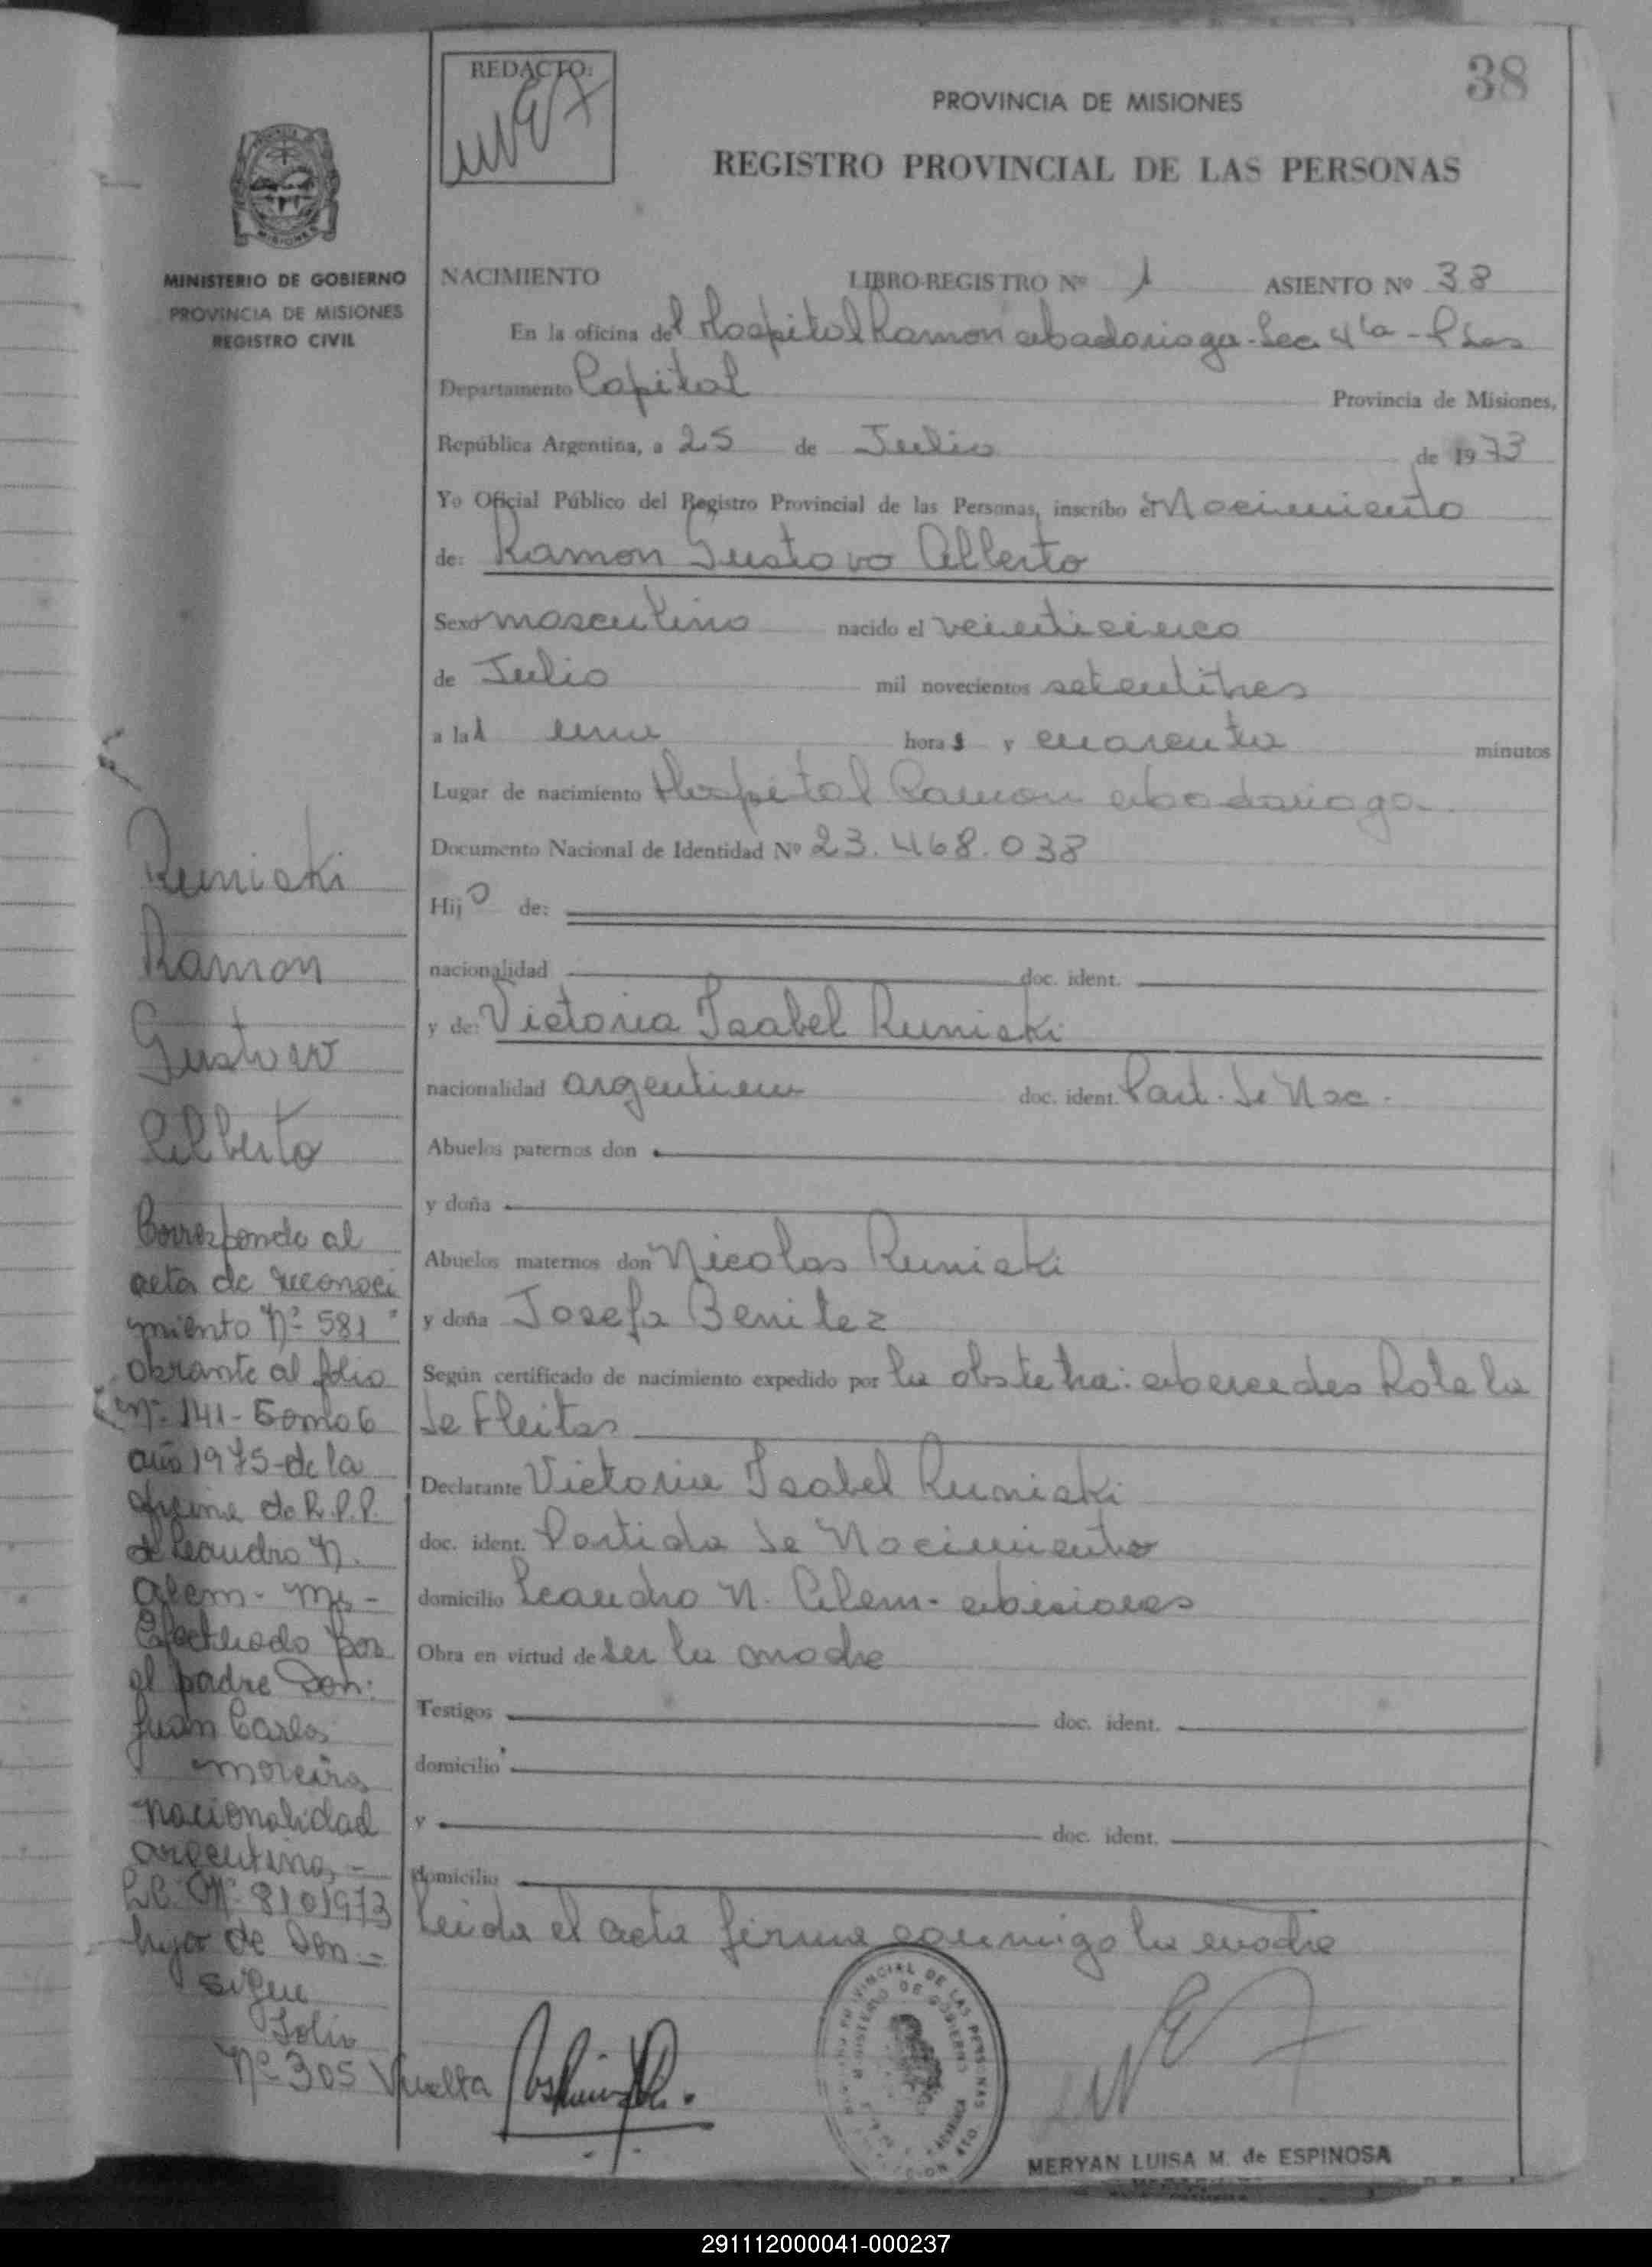 38
REDACTO:
PROVINCIA DE MISIONES
REGISTRO PROVINCIAL DE LAS PERSONAS
MISIONES
MINISTERIO DE GOBIERNO
PROVINCIA DE MISIONES
REGISTRO CIVIL
NACIMIENTO LIBRO-REGISTRO Nº 1 ASIENTO Nº 38
En la oficina del Hospital Ramon Madariaga - Sec. 4ta - Pdas
Departamento Capital Provincia de Misiones,
República Argentina, a 25 de Julio de 1973
Yo Oficial Público del Registro Provincial de las Personas, inscribo el Nacimiento
de: Ramon Gustavo Alberto
Sexo masculino nacido el veinticinco
de Julio mil novecientos setentitres
a la una hora y cuarenta minutos
Lugar de nacimiento Hospital Ramon Madariaga
Documento Nacional de Identidad Nº 23.468.038
Hijo de:
nacionalidad doc. ident.
y de: Victoria Isabel Runiski
nacionalidad argentina doc. ident. Part. de Nac.
Abuelos paternos don
y doña
Abuelos maternos don Nicolas Runiski
y doña Josefa Benitez
Según certificado de nacimiento expedido por la obstetra: Mercedes Rolela
de Fleitas
Declarante Victoria Isabel Runiski
doc. ident. Partida de Nacimiento
domicilio Leandro N. Alem - Misiones
Obra en virtud de ser la madre
Testigos doc. ident.
domicilio
y doc. ident.
domicilio
Leida el acta firma conmigo la madre
MERYAN LUISA M. de ESPINOSA
Runiski
Ramon
Gustavo
Alberto
Corresponde al
acta de reconoci
miento Nº 581
obrante al folio
Nº 141 - Tomo 6
año 1975 - de la
oficina de R.P.P.
de Leandro N.
Alem - Ms -
Efectuado por
el padre Don:
Juan Carlos
Moreira
nacionalidad
argentina, -
L.E. Nº 8101973
hijo de Don: -
sigue
Folio
Nº 305 Vuelta
291112000041-000237